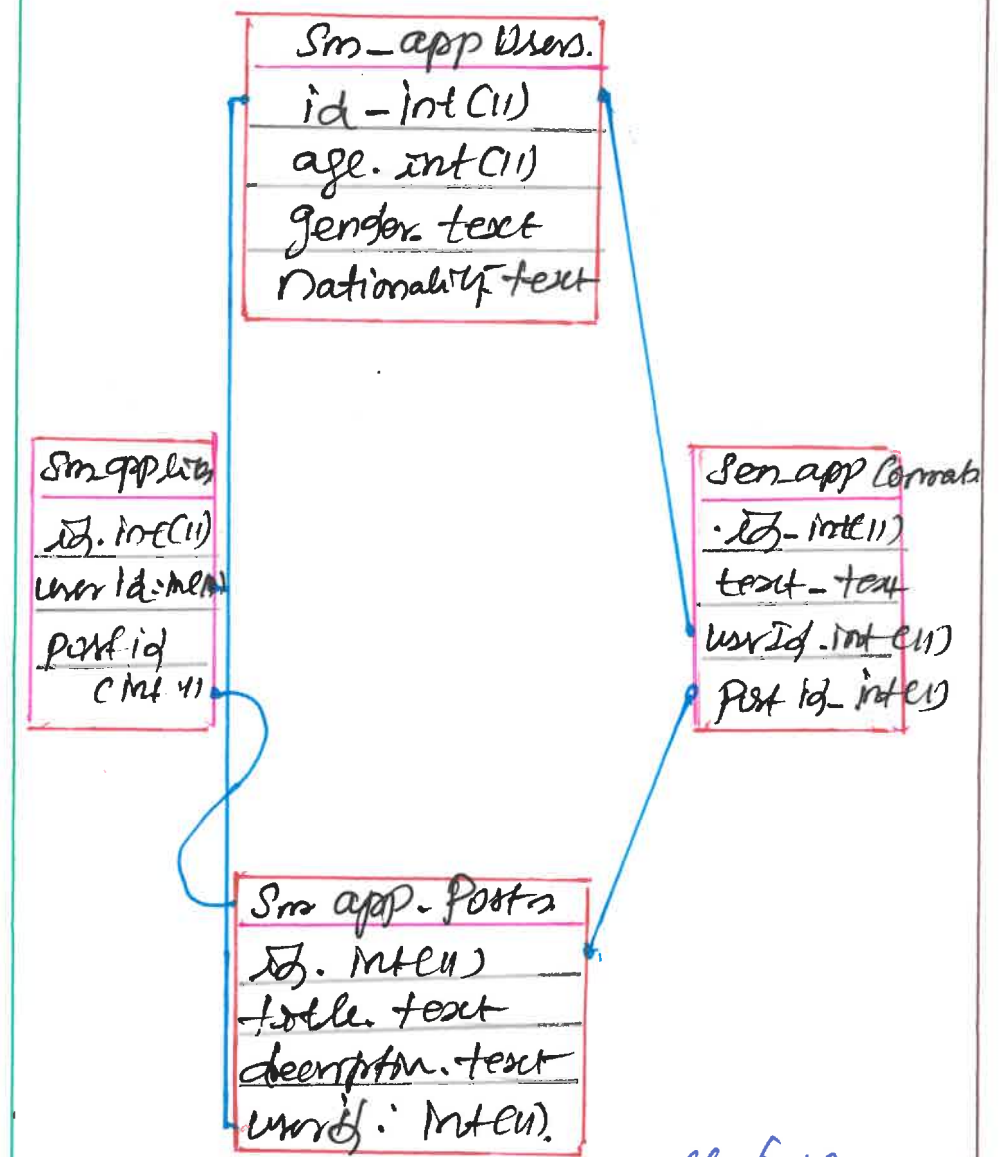 Sm_app Users.
id - int (11)
age. int (11)
gender. text
Nationality text
Sm_app
id. int (11)
user id:
post id
(int 11
Sm_app
id - int(11)
text - text
user Id. int (11)
Post id - int(11)
Sm app. Posts
id. int(11)
title. text
text
user id: int(11).